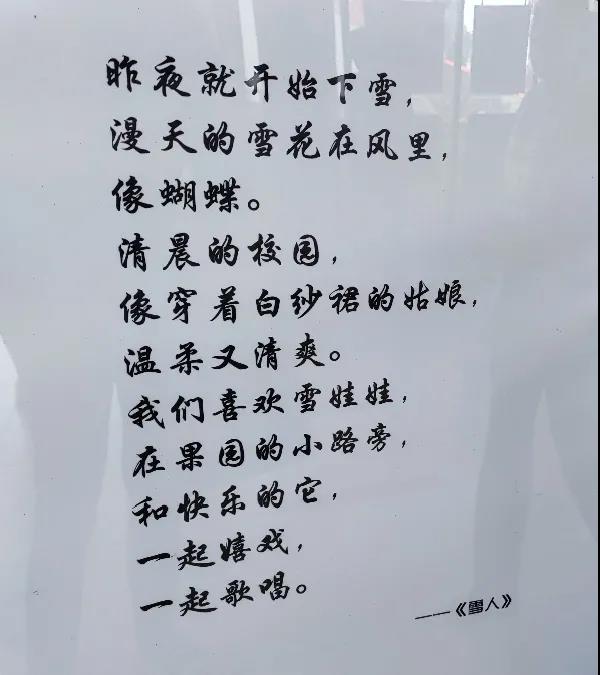 昨夜就开始下雪，
漫天的雪花在风里，
像蝴蝶。
清晨的校园，
像穿着白纱裙的姑娘，
温柔又清爽。
我们喜欢雪娃娃，
在果园的小路旁，
和快乐的它，
一起嬉戏，
一起歌唱。
——《雪人》